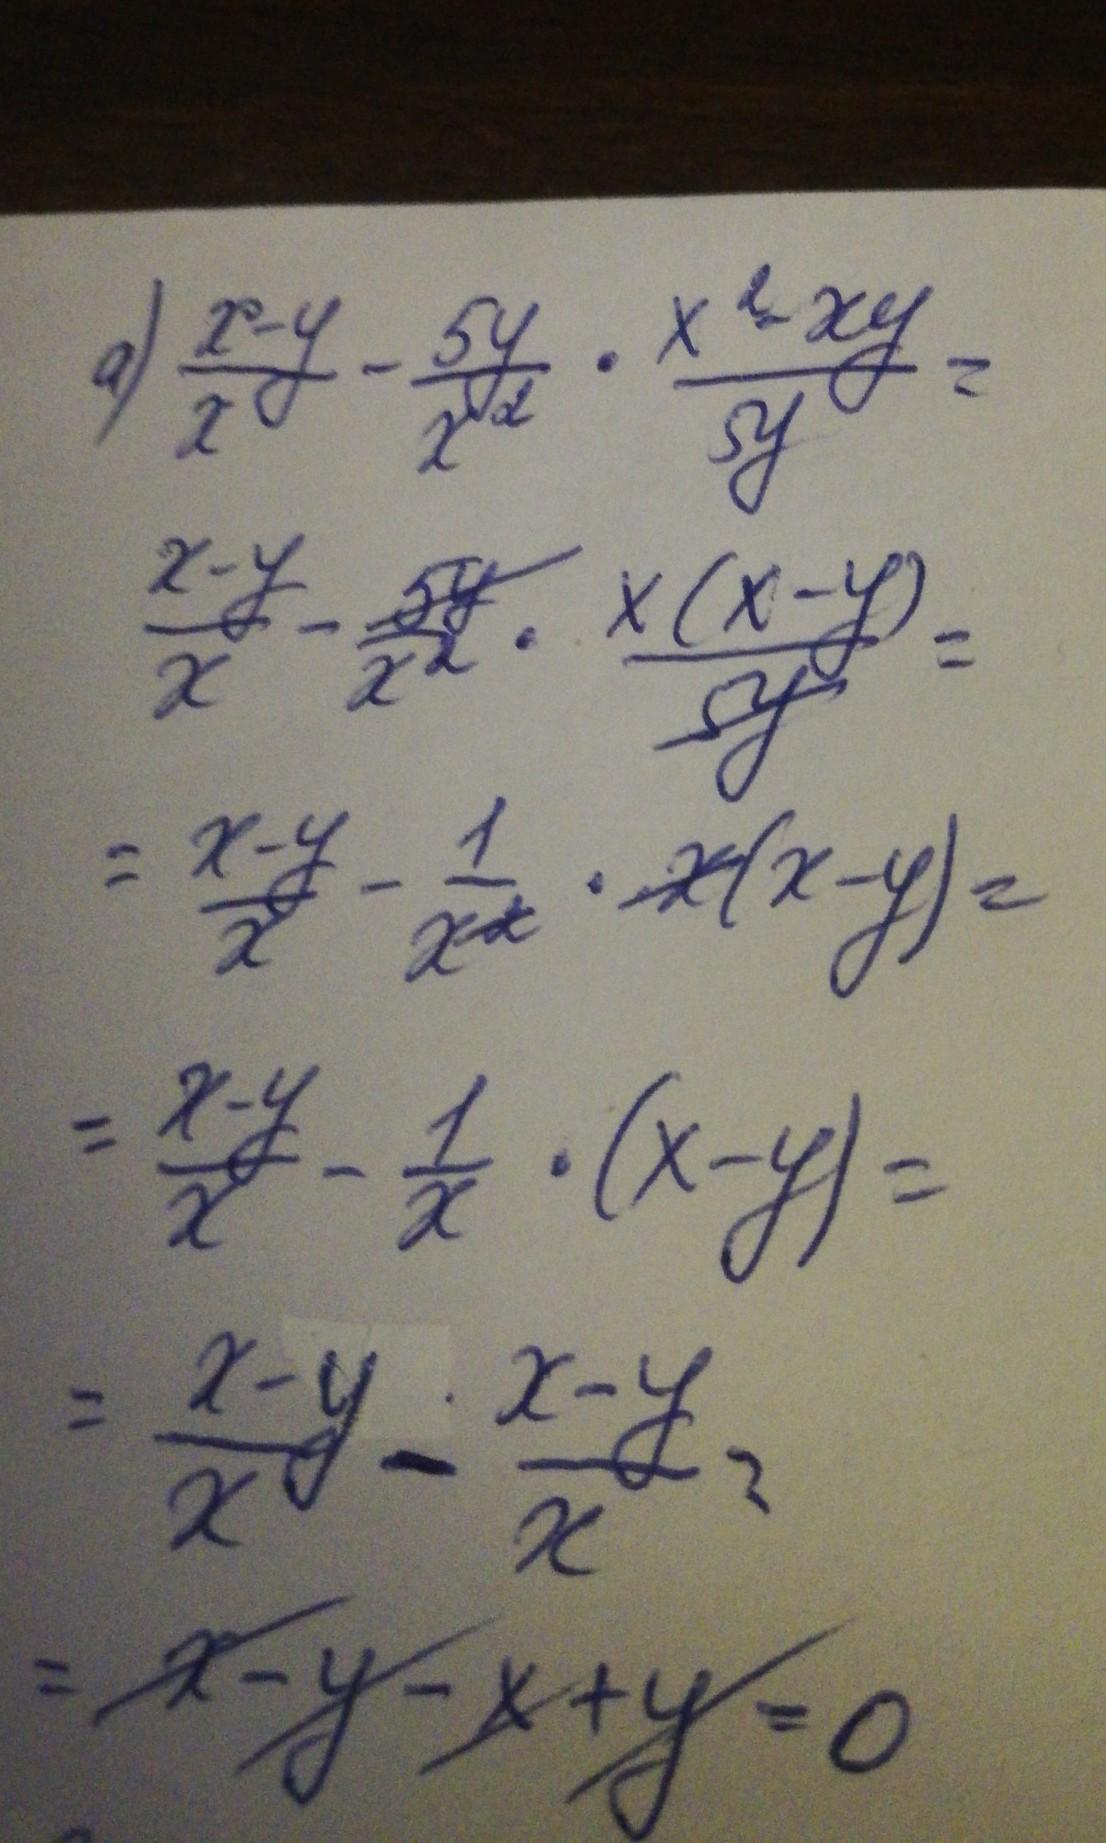 а) (x-y)/x - 5y/x² · (x²-xy)/5y =
(x-y)/x - 5y/x² · x(x-y)/5y =
= (x-y)/x - 1/x² · x(x-y) =
= (x-y)/x - 1/x · (x-y) =
= (x-y)/x - (x-y)/x =
= x-y-x+y = 0